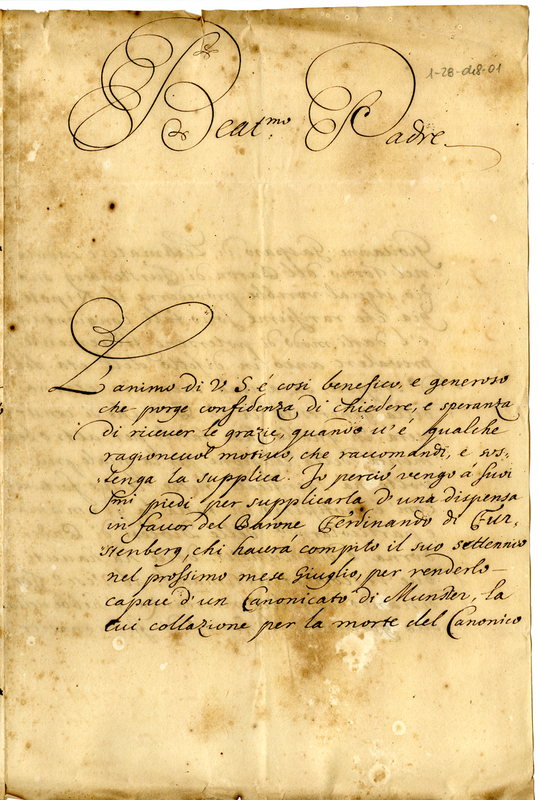 1-28-des-01
Beat.mo Padre
L'animo di V. S. é cosi benefico, e generoso
che porge confidenza di chiedere, e speranza
di riceuer le grazie, quando u' é qualche
ragioneuol motiuo, che raccomandi, e sos-
tenga la supplica. Io perció vengo á suoi
S.mi piedi per supplicarla d'una dispensa
in fauor del Barone Ferdinando di Fur,
stenberg, chi hauerá compito il suo settennio
nel prossimo mese Giuglio, per renderlo
capace d'un Canonicato di Munster, la
cui collazione per la morte del Canonico